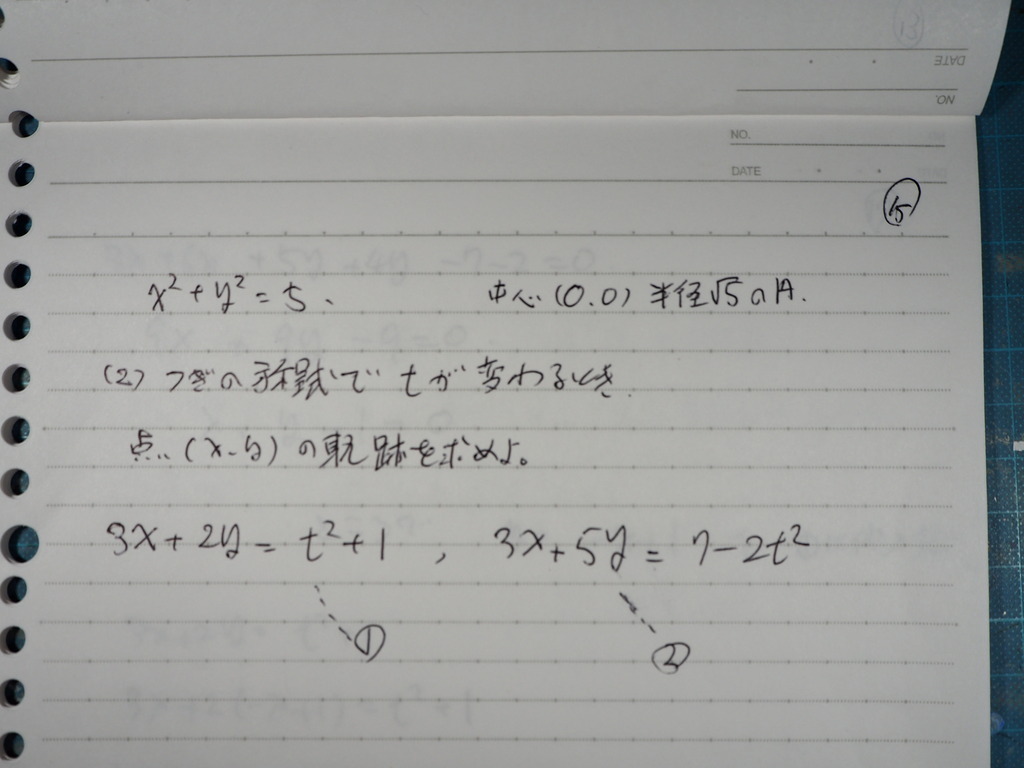 NO.
DATE
NO.
DATE
15
x²+y²=5、 中心(0.0)半径√5の円.
(2)つぎの形式でtが変わるとき.
点(x、y)の軌跡を求めよ。
3x+2y=t²+1, 3x+5y=7-2t²
① ②